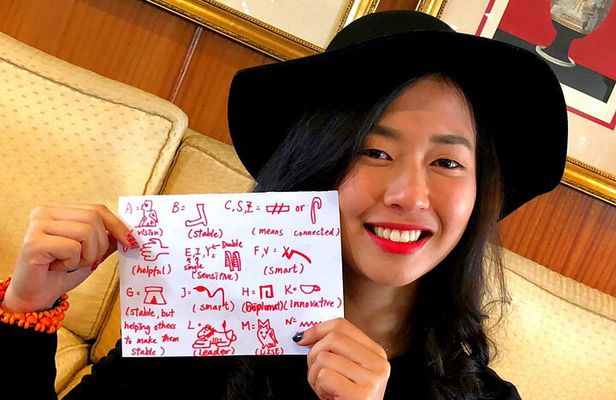 A= B= C,S,Z= or
(vision) (stable) (means connected)
D= E,I,Y= Double F,V=
single
(helpful) (sensitive) (smart)
G= J= H= K=
(stable, but (smart) (Diplomat) (Innovative)
helping others L= M= N=
to make them (Leader) (WISE)
stable)